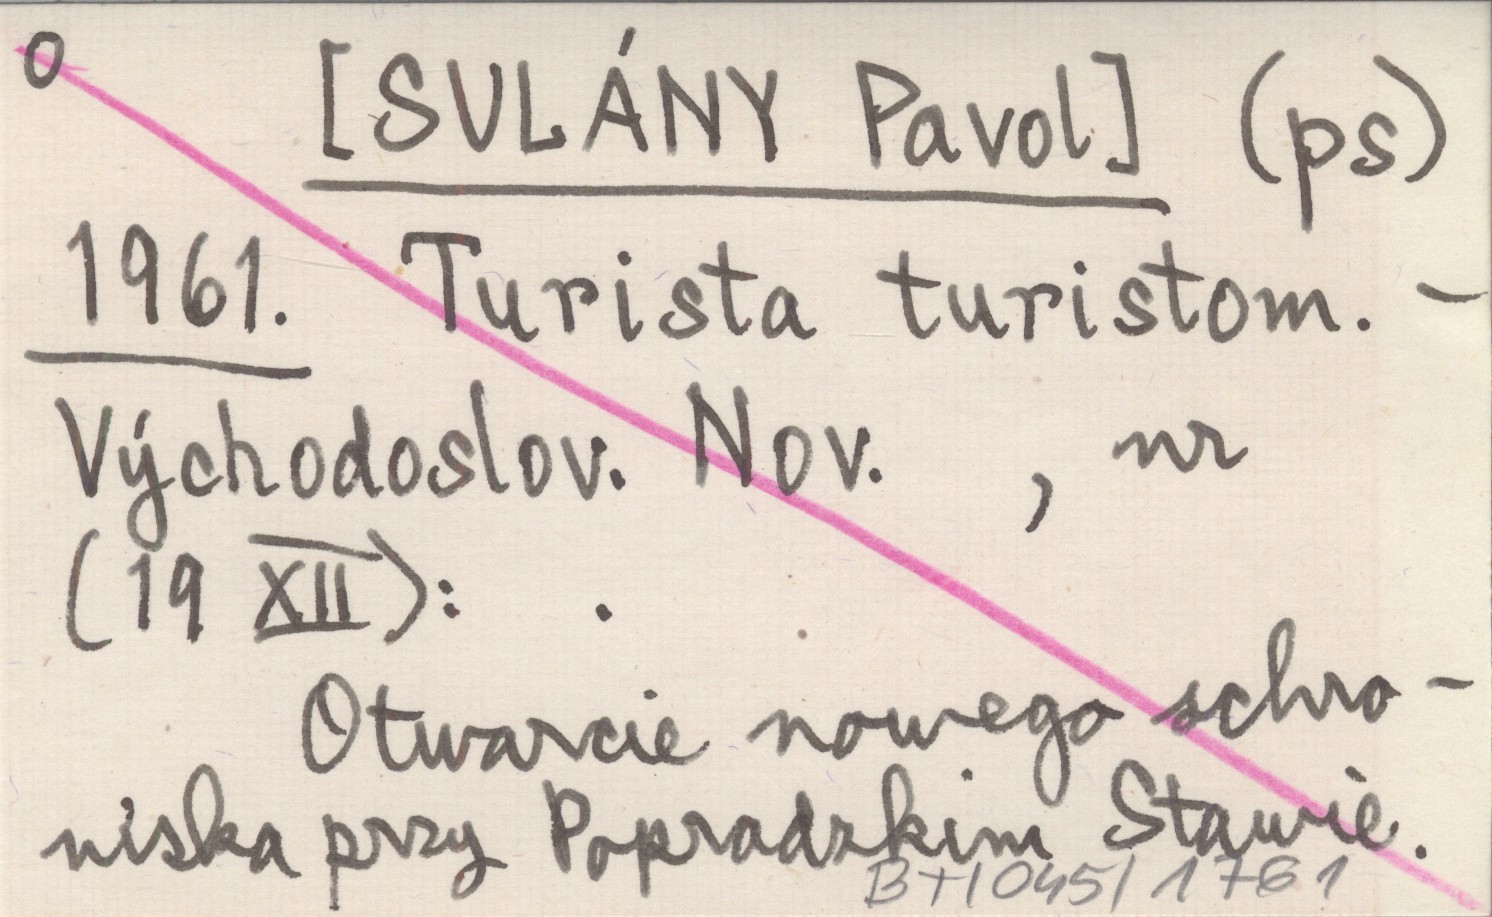 O [SULÁNY Pavol] (ps)
1961. Turista turistom. -
Východoslov. Nov. , nr
(19 XII): .
Otwarcie nowego schro-
niska przy Popradzkim Stawie.
BT/045/1761